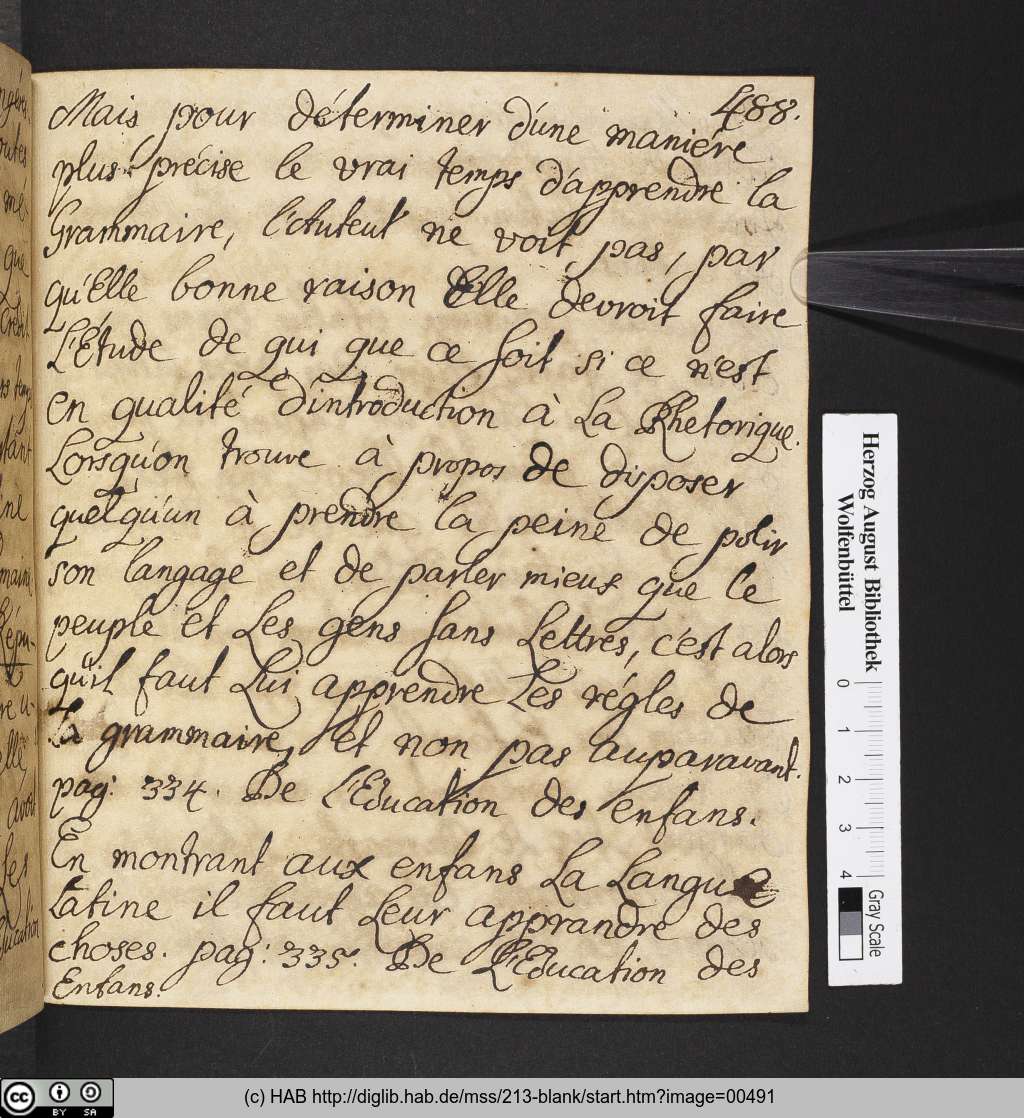 488.
Mais pour déterminer d'une maniére
plus précise le vrai temps d'apprendre la
Grammaire, l'Auteur ne voit pas, par
qu'Elle bonne raison Elle devroit faire
L'Étude de qui que ce soit si ce n'est
en qualité d'introduction à La Rhetorique.
Lorsqu'on trouve à propos de disposer
quelqu'un à prendre la peine de polir
son langage et de parler mieux que le
peuple et Les gens sans Lettres, c'est alors
qu'il faut Lui apprendre Les régles de
la grammaire, et non pas auparavant.
pag: 334. De L'Education des enfans.
En montrant aux enfans La Langue
Latine il faut Leur apprandre des
choses. pag: 335. De L'Education des
Enfans.
Herzog August Bibliothek
Wolfenbüttel
0 1 2 3 4
Gray Scale
cc BY SA
(c) HAB http://diglib.hab.de/mss/213-blank/start.htm?image=00491